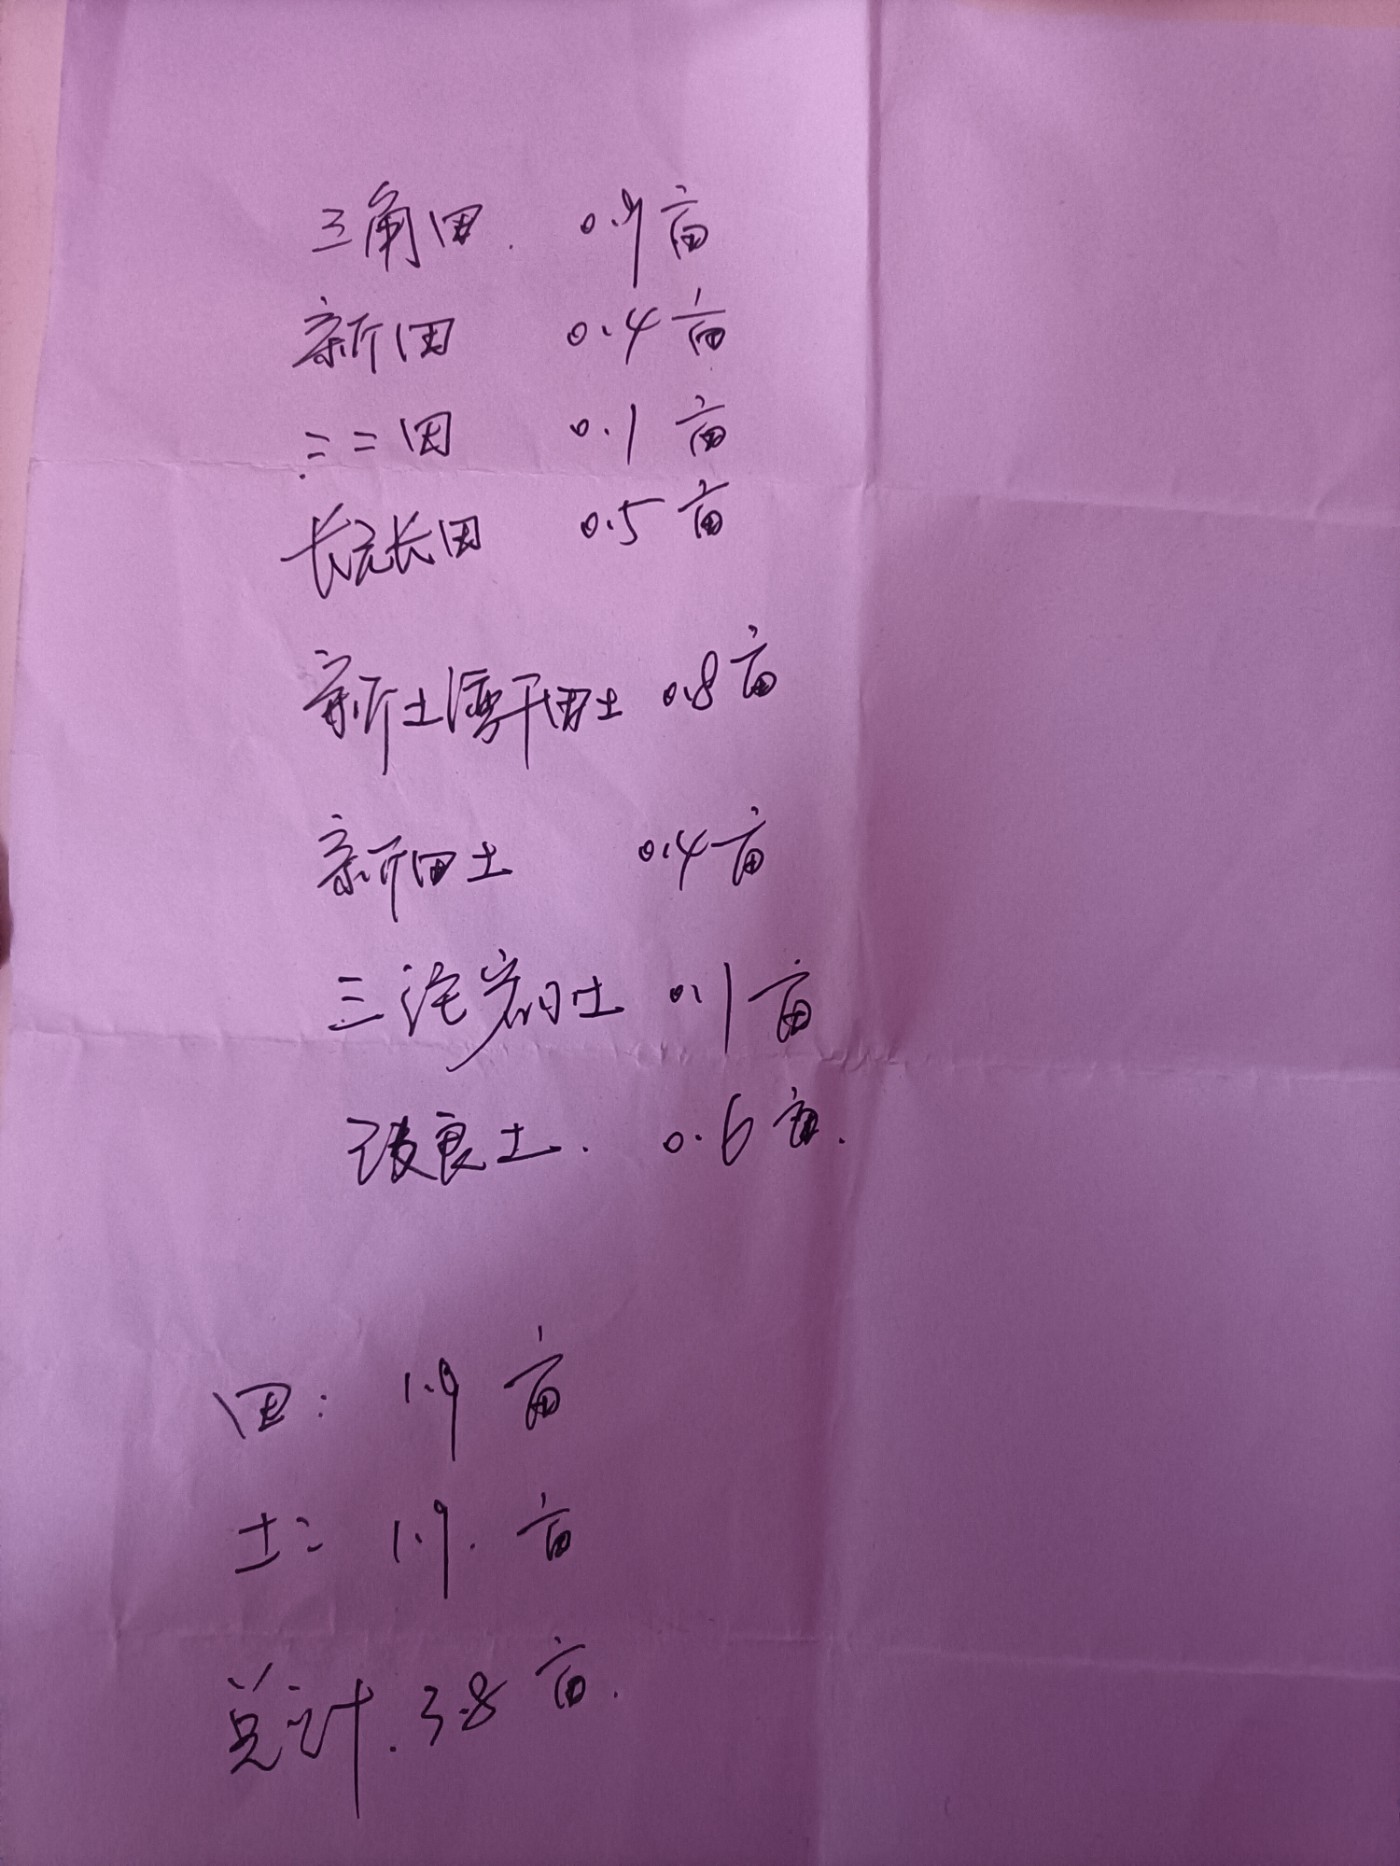 三角田. 0.9亩
新田 0.4亩
二二田 0.1亩
长冲长田 0.5亩
新土 田土 0.8亩
新田土 0.4亩
三 岩 土 0.1亩
改良土. 0.6亩.
田: 1.9亩
土: 1.9.亩
总计.3.8亩.